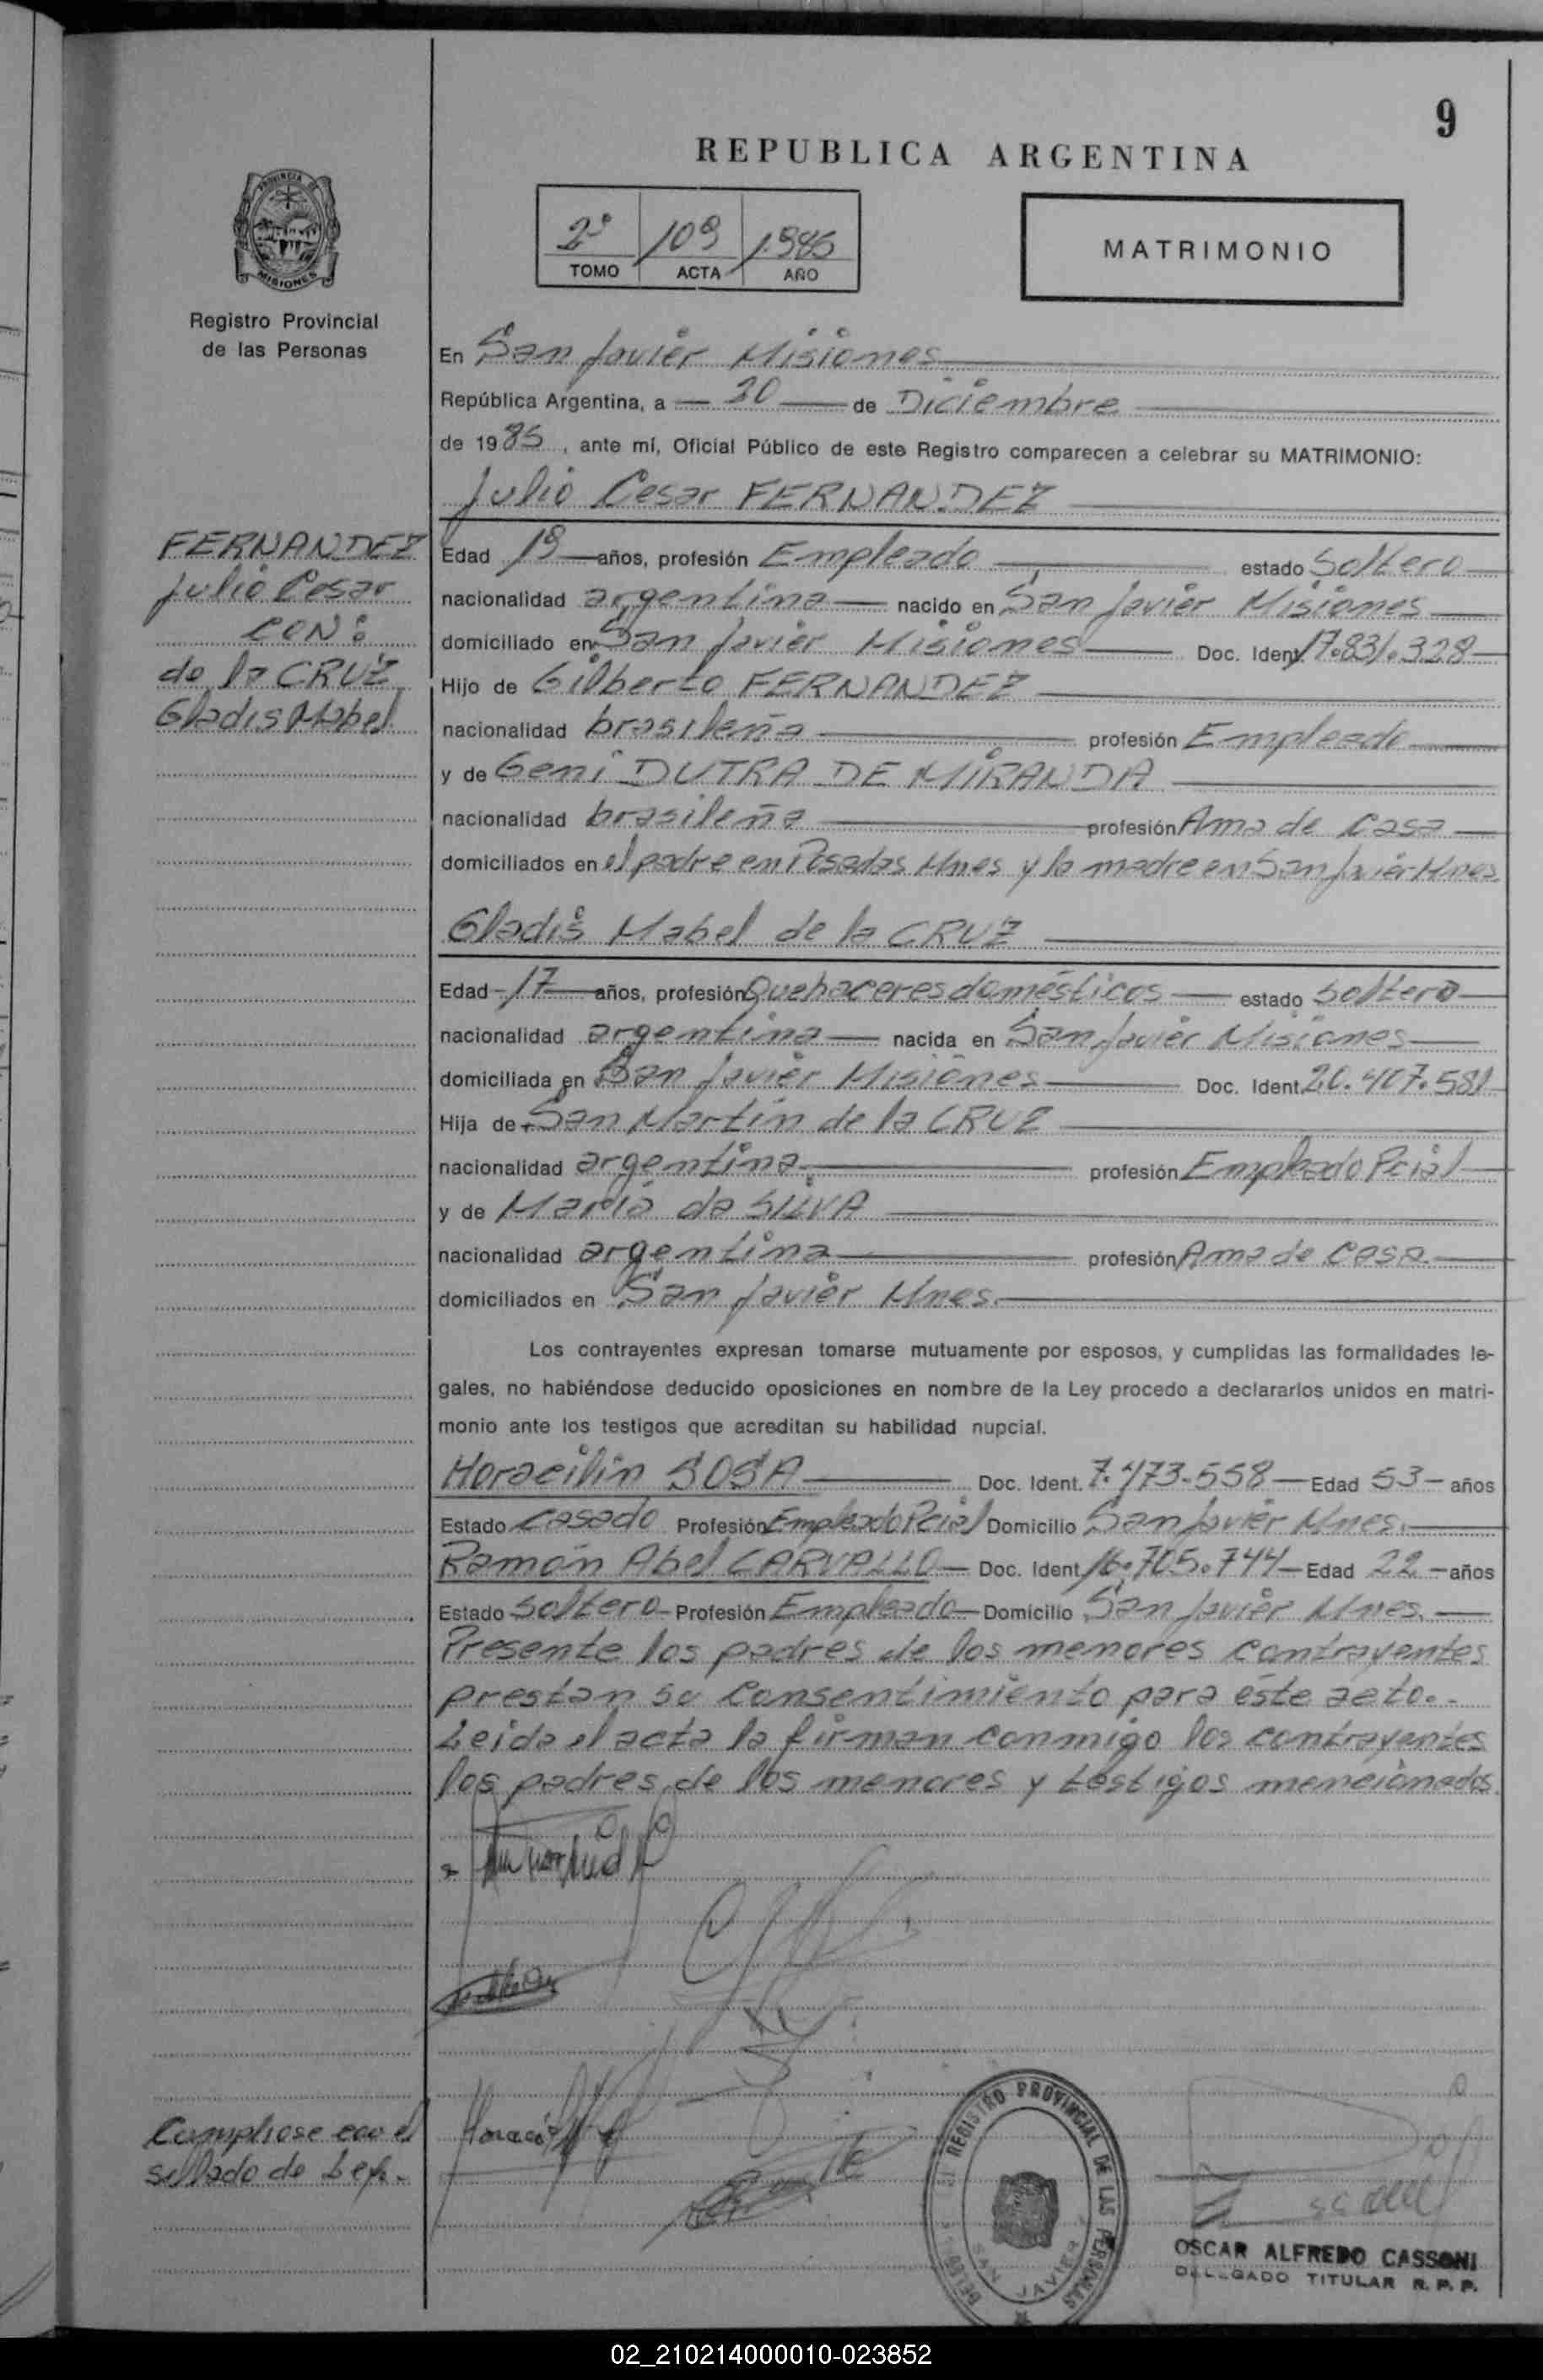 9
REPUBLICA ARGENTINA
2º 109 1.986
TOMO ACTA AÑO
MATRIMONIO
PROVINCIA DE MISIONES
Registro Provincial
de las Personas
En San Javier Misiones
República Argentina, a 20 de Diciembre
de 1986, ante mí, Oficial Público de este Registro comparecen a celebrar su MATRIMONIO:
Julio Cesar FERNANDEZ
FERNANDEZ
Julio Cesar
CON:
de la CRUZ
Gladis Mabel
Edad 19 años, profesión Empleado estado Soltero
nacionalidad argentina nacido en San Javier Misiones
domiciliado en San Javier Misiones Doc. Ident. 17.831.328
Hijo de Gilberto FERNANDEZ
nacionalidad brasileña profesión Empleado
y de Geni DUTRA DE MIRANDA
nacionalidad brasileña profesión Ama de Casa
domiciliados en el padre en Posadas Mnes y la madre en San Javier Mnes.
Gladis Mabel de la CRUZ
Edad 17 años, profesión Quehaceres domésticos estado Soltera
nacionalidad argentina nacida en San Javier Misiones
domiciliada en San Javier Misiones Doc. Ident. 20.407.581
Hija de San Martín de la CRUZ
nacionalidad argentina profesión Empleado Pcial
y de María da SILVA
nacionalidad argentina profesión Ama de Casa
domiciliados en San Javier Mnes.
Los contrayentes expresan tomarse mutuamente por esposos, y cumplidas las formalidades le-
gales, no habiéndose deducido oposiciones en nombre de la Ley procedo a declararlos unidos en matri-
monio ante los testigos que acreditan su habilidad nupcial.
Horacilin SOSA Doc. Ident. 7.473.558 Edad 53 años
Estado Casado Profesión Empleado Pcial Domicilio San Javier Mnes.
Ramón Abel CARVALLO Doc. Ident. 16.705.744 Edad 22 años
Estado Soltero Profesión Empleado Domicilio San Javier Mnes.
Presente los padres de los menores contrayentes
prestan su Consentimiento para éste acto.-
Leida el acta la firman conmigo los contrayentes
los padres de los menores y testigos mencionados.
Cumplase con el
sellado de Ley.
REGISTRO PROVINCIAL DE LAS PERSONAS
SAN JAVIER
OSCAR ALFREDO CASSONI
DELEGADO TITULAR R. P. P.
02_210214000010-023852